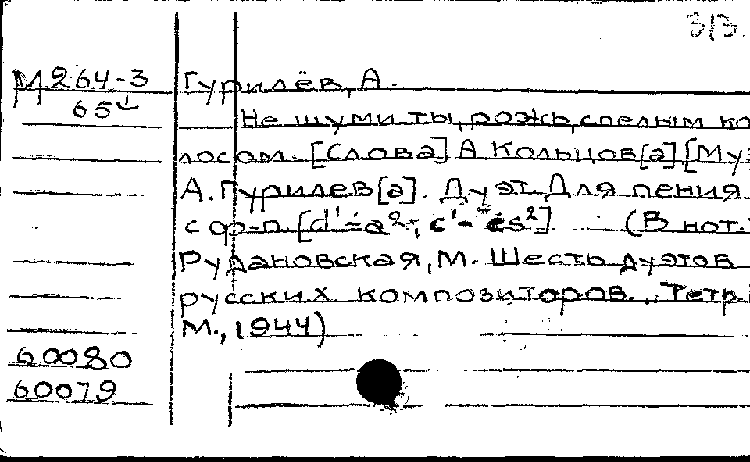 313.
М264-3 Гурилёв, А.
65
Не шуми ты, рожь, спелым ко
лосом. [Слова] А Кольцов[а] [Му
А. Гурилев[а]. Дуэт Для пения
с ф-п. [d¹-a², c¹- es²]. (В нот.
Рудановская, М. Шесть дуэтов
русских композиторов. Тетр
М., 1944)
60080
60079